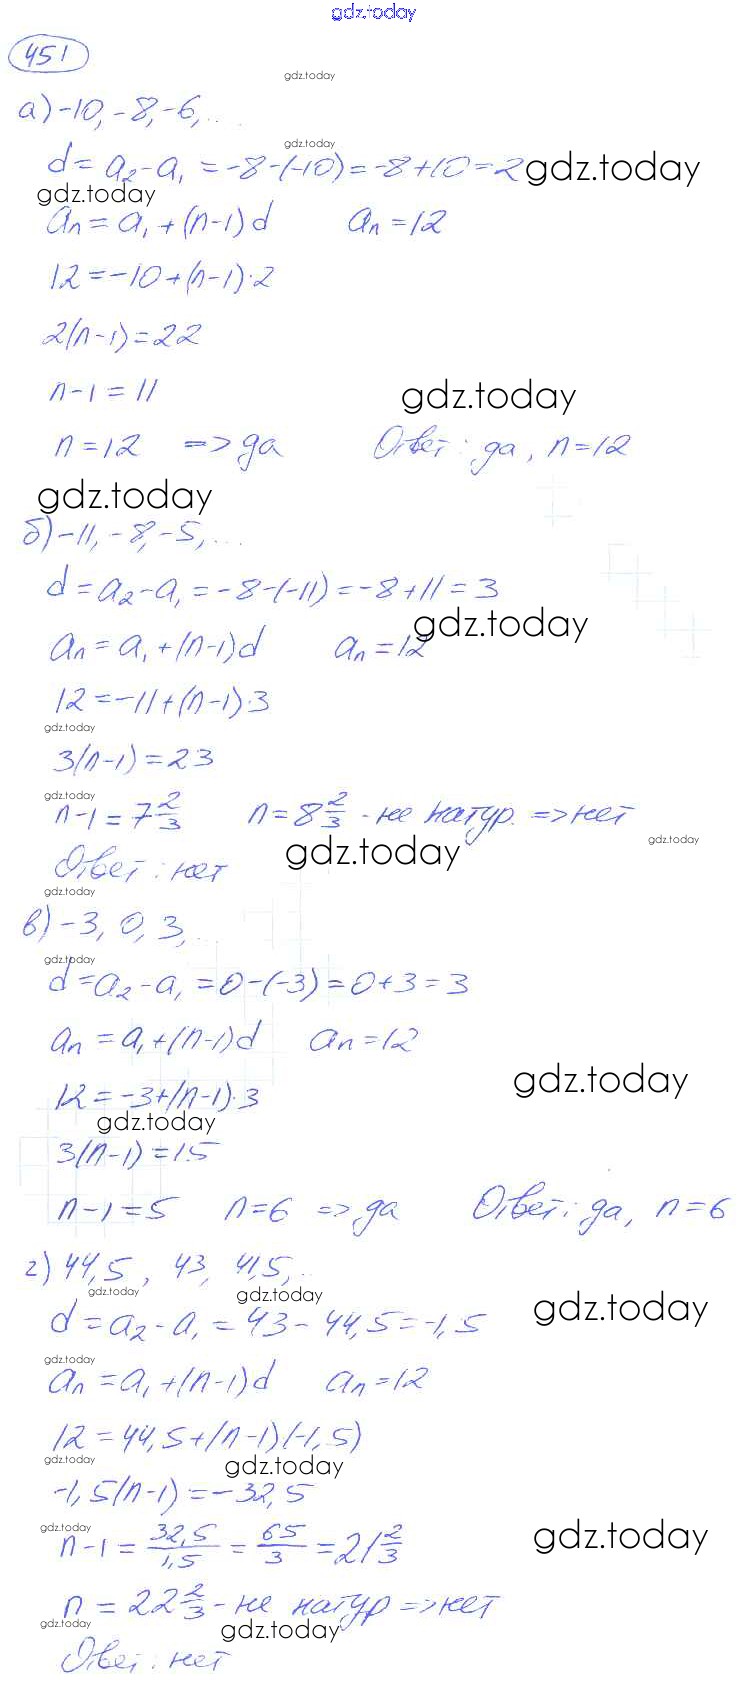 gdz.today
451
gdz.today
а) -10, -8, -6, ...
gdz.today
d = a₂ - a₁ = -8 - (-10) = -8 + 10 = 2 gdz.today
gdz.today
aₙ = a₁ + (n-1)d aₙ = 12
12 = -10 + (n-1)·2
2(n-1) = 22
n-1 = 11
gdz.today
n = 12 => да Ответ: да, n = 12
gdz.today
б) -11, -8, -5, ...
d = a₂ - a₁ = -8 - (-11) = -8 + 11 = 3
gdz.today
aₙ = a₁ + (n-1)d aₙ = 12
12 = -11 + (n-1)·3
gdz.today
3(n-1) = 23
gdz.today
n-1 = 7 2/3 n = 8 2/3 - не натур. => нет
gdz.today
gdz.today
Ответ: нет
gdz.today
в) -3, 0, 3, ...
gdz.today
d = a₂ - a₁ = 0 - (-3) = 0 + 3 = 3
aₙ = a₁ + (n-1)d aₙ = 12
gdz.today
12 = -3 + (n-1)·3
gdz.today
3(n-1) = 15
n-1 = 5 n = 6 => да Ответ: да, n = 6
г) 44,5, 43, 41,5, ...
gdz.today gdz.today
gdz.today
d = a₂ - a₁ = 43 - 44,5 = -1,5
gdz.today
aₙ = a₁ + (n-1)d aₙ = 12
12 = 44,5 + (n-1)(-1,5)
gdz.today gdz.today
-1,5(n-1) = -32,5
gdz.today gdz.today
n-1 = 32,5/1,5 = 65/3 = 21 2/3
n = 22 2/3 - не натур => нет
gdz.today gdz.today
Ответ: нет